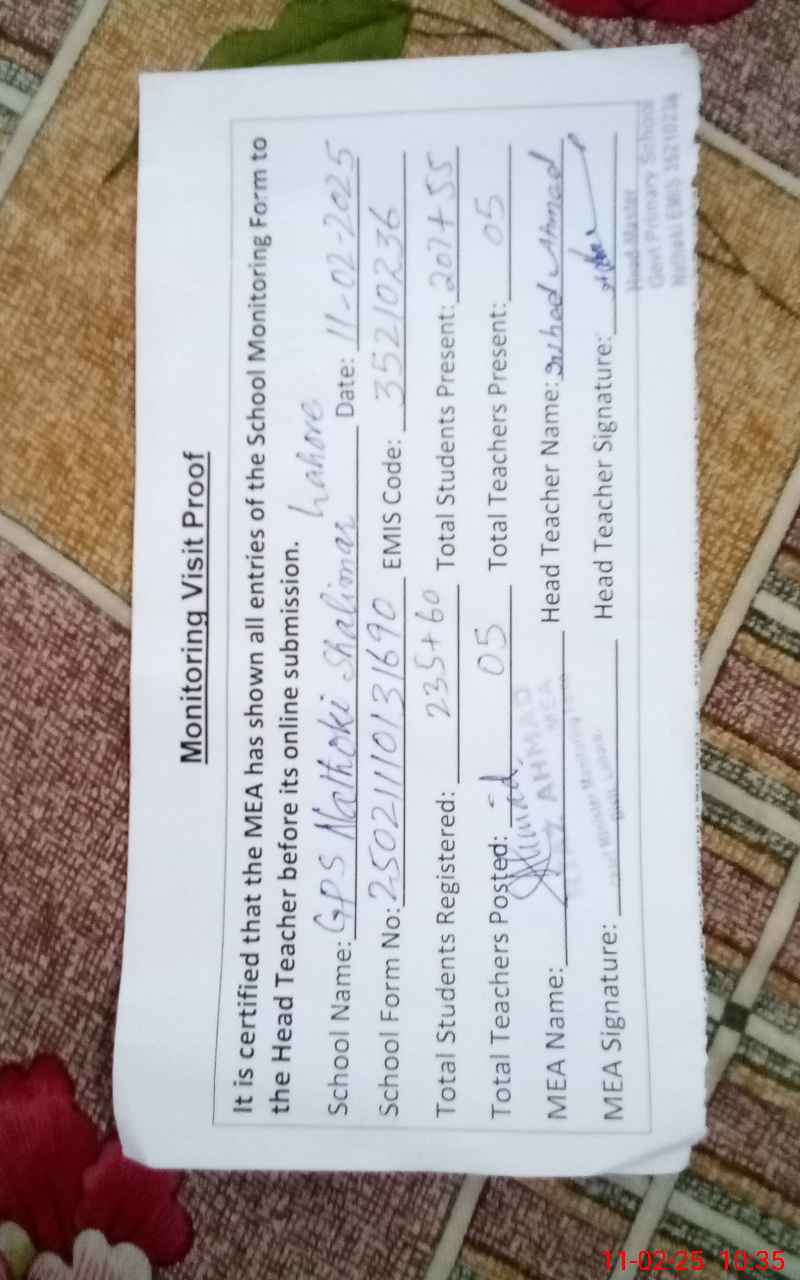 Monitoring Visit Proof
It is certified that the MEA has shown all entries of the School Monitoring Form to
the Head Teacher before its online submission.
School Name: GPS Nathoki Shalimar Lahore Date: 11-02-2025
School Form No: 2502111013 1690 EMIS Code: 35210236
Total Students Registered: 235+60 Total Students Present: 207+55
Total Teachers Posted: 05 Total Teachers Present: 05
MEA Name: AHMAD Head Teacher Name: Ahmed
MEA
MEA Signature: Head Teacher Signature:
Head Master
Govt Primary School
Nathoki EMIS 35210236
11-02-25 10:35